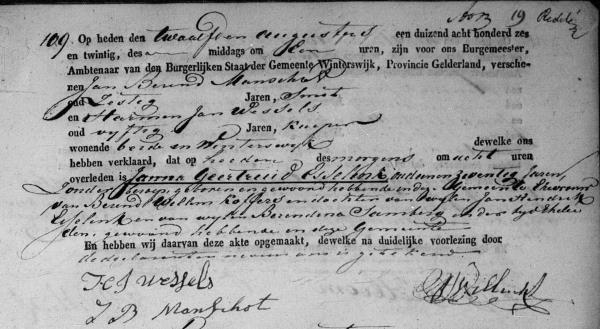 109 Op heden den twaalfden augustus een duizend acht honderd zes
en twintig, des middags om een uren, zijn voor ons Burgemeester,
Ambtenaar van den Burgerlijken Staat der Gemeente Winterswijk, Provincie Gelderland, versche-
nen Jan Berend Manschot
oud zestig Jaren, Smid
en Harmen Jan Wessels
oud vyftig Jaren, kuiper
wonende beide in Winterswyk dewelke ons
hebben verklaard, dat op heeden des morgens om acht uren
overleden is Janna Geertruid Esselink oud een en zeventig Jaren,
zonder beroep, geboren en gewoond hebbende in deze Gemeente, Vrouw
van Berend Willem en dochter van wylen Jan Hendrik
Esselink en van wylen Berendena
den, gewoond hebbende in deze Gemeente
En hebben wij daarvan deze akte opgemaakt, dewelke na duidelijke voorlezing door
de declaranten nevens ons is getekend
Wessels
J B Manschot